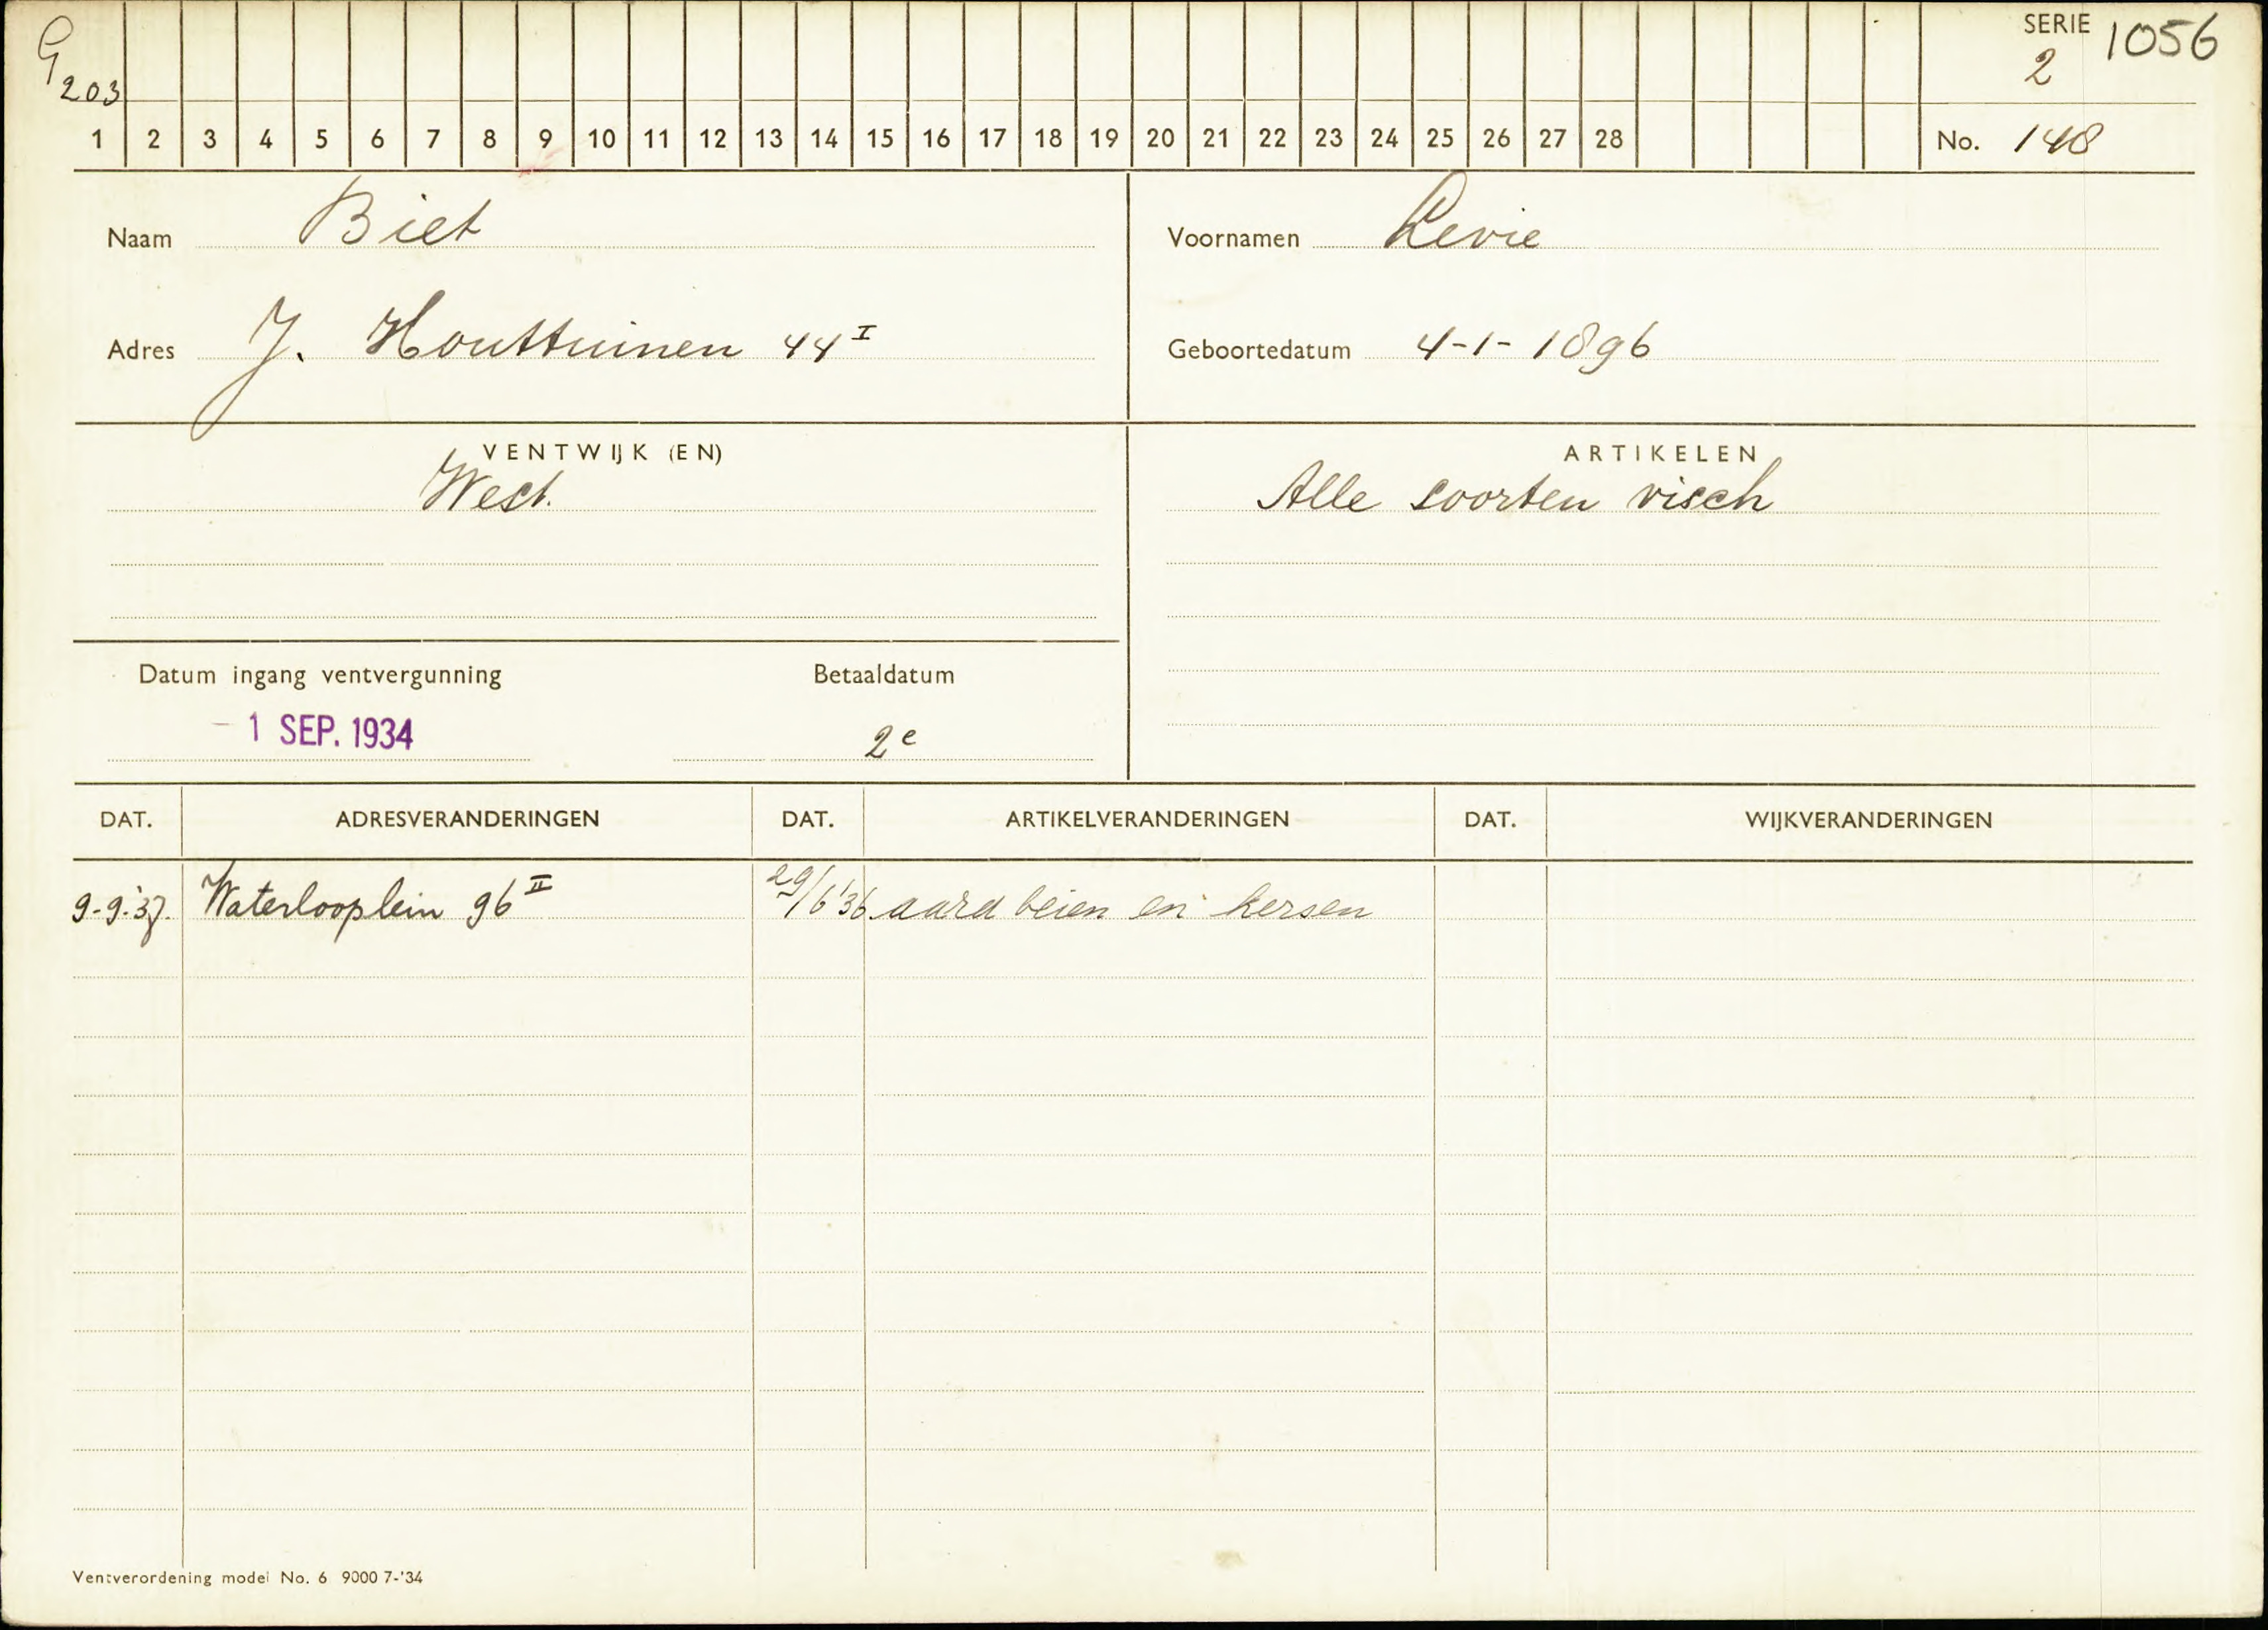 G 203
SERIE 1056
2
1 2 3 4 5 6 7 8 9 10 11 12 13 14 15 16 17 18 19 20 21 22 23 24 25 26 27 28 No. 148
Naam Biet Voornamen Levie
Adres J. Houttuinen 44 I Geboortedatum 4-1-1896
VENTWIJK (EN) ARTIKELEN
West. Alle soorten visch
Datum ingang ventvergunning Betaaldatum
- 1 SEP. 1934 2e
DAT. ADRESVERANDERINGEN DAT. ARTIKELVERANDERINGEN DAT. WIJKVERANDERINGEN
9-9-'37. Waterlooplein 96 II 29/6'36 aardbeien en kersen
Ventverordening model No. 6 9000 7-'34